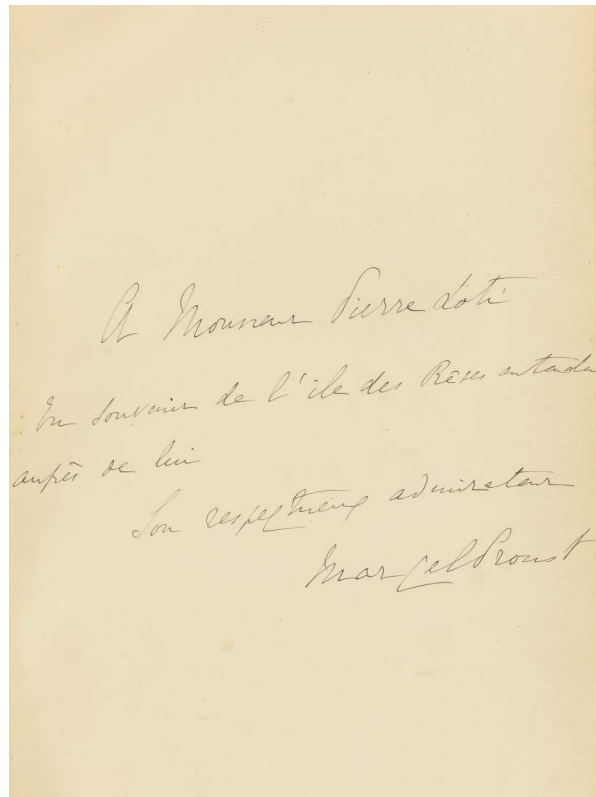 A Monsieur Pierre Loti
En souvenir de l'île des Rêves entendu
auprès de lui
Son respectueux admirateur
Marcel Proust